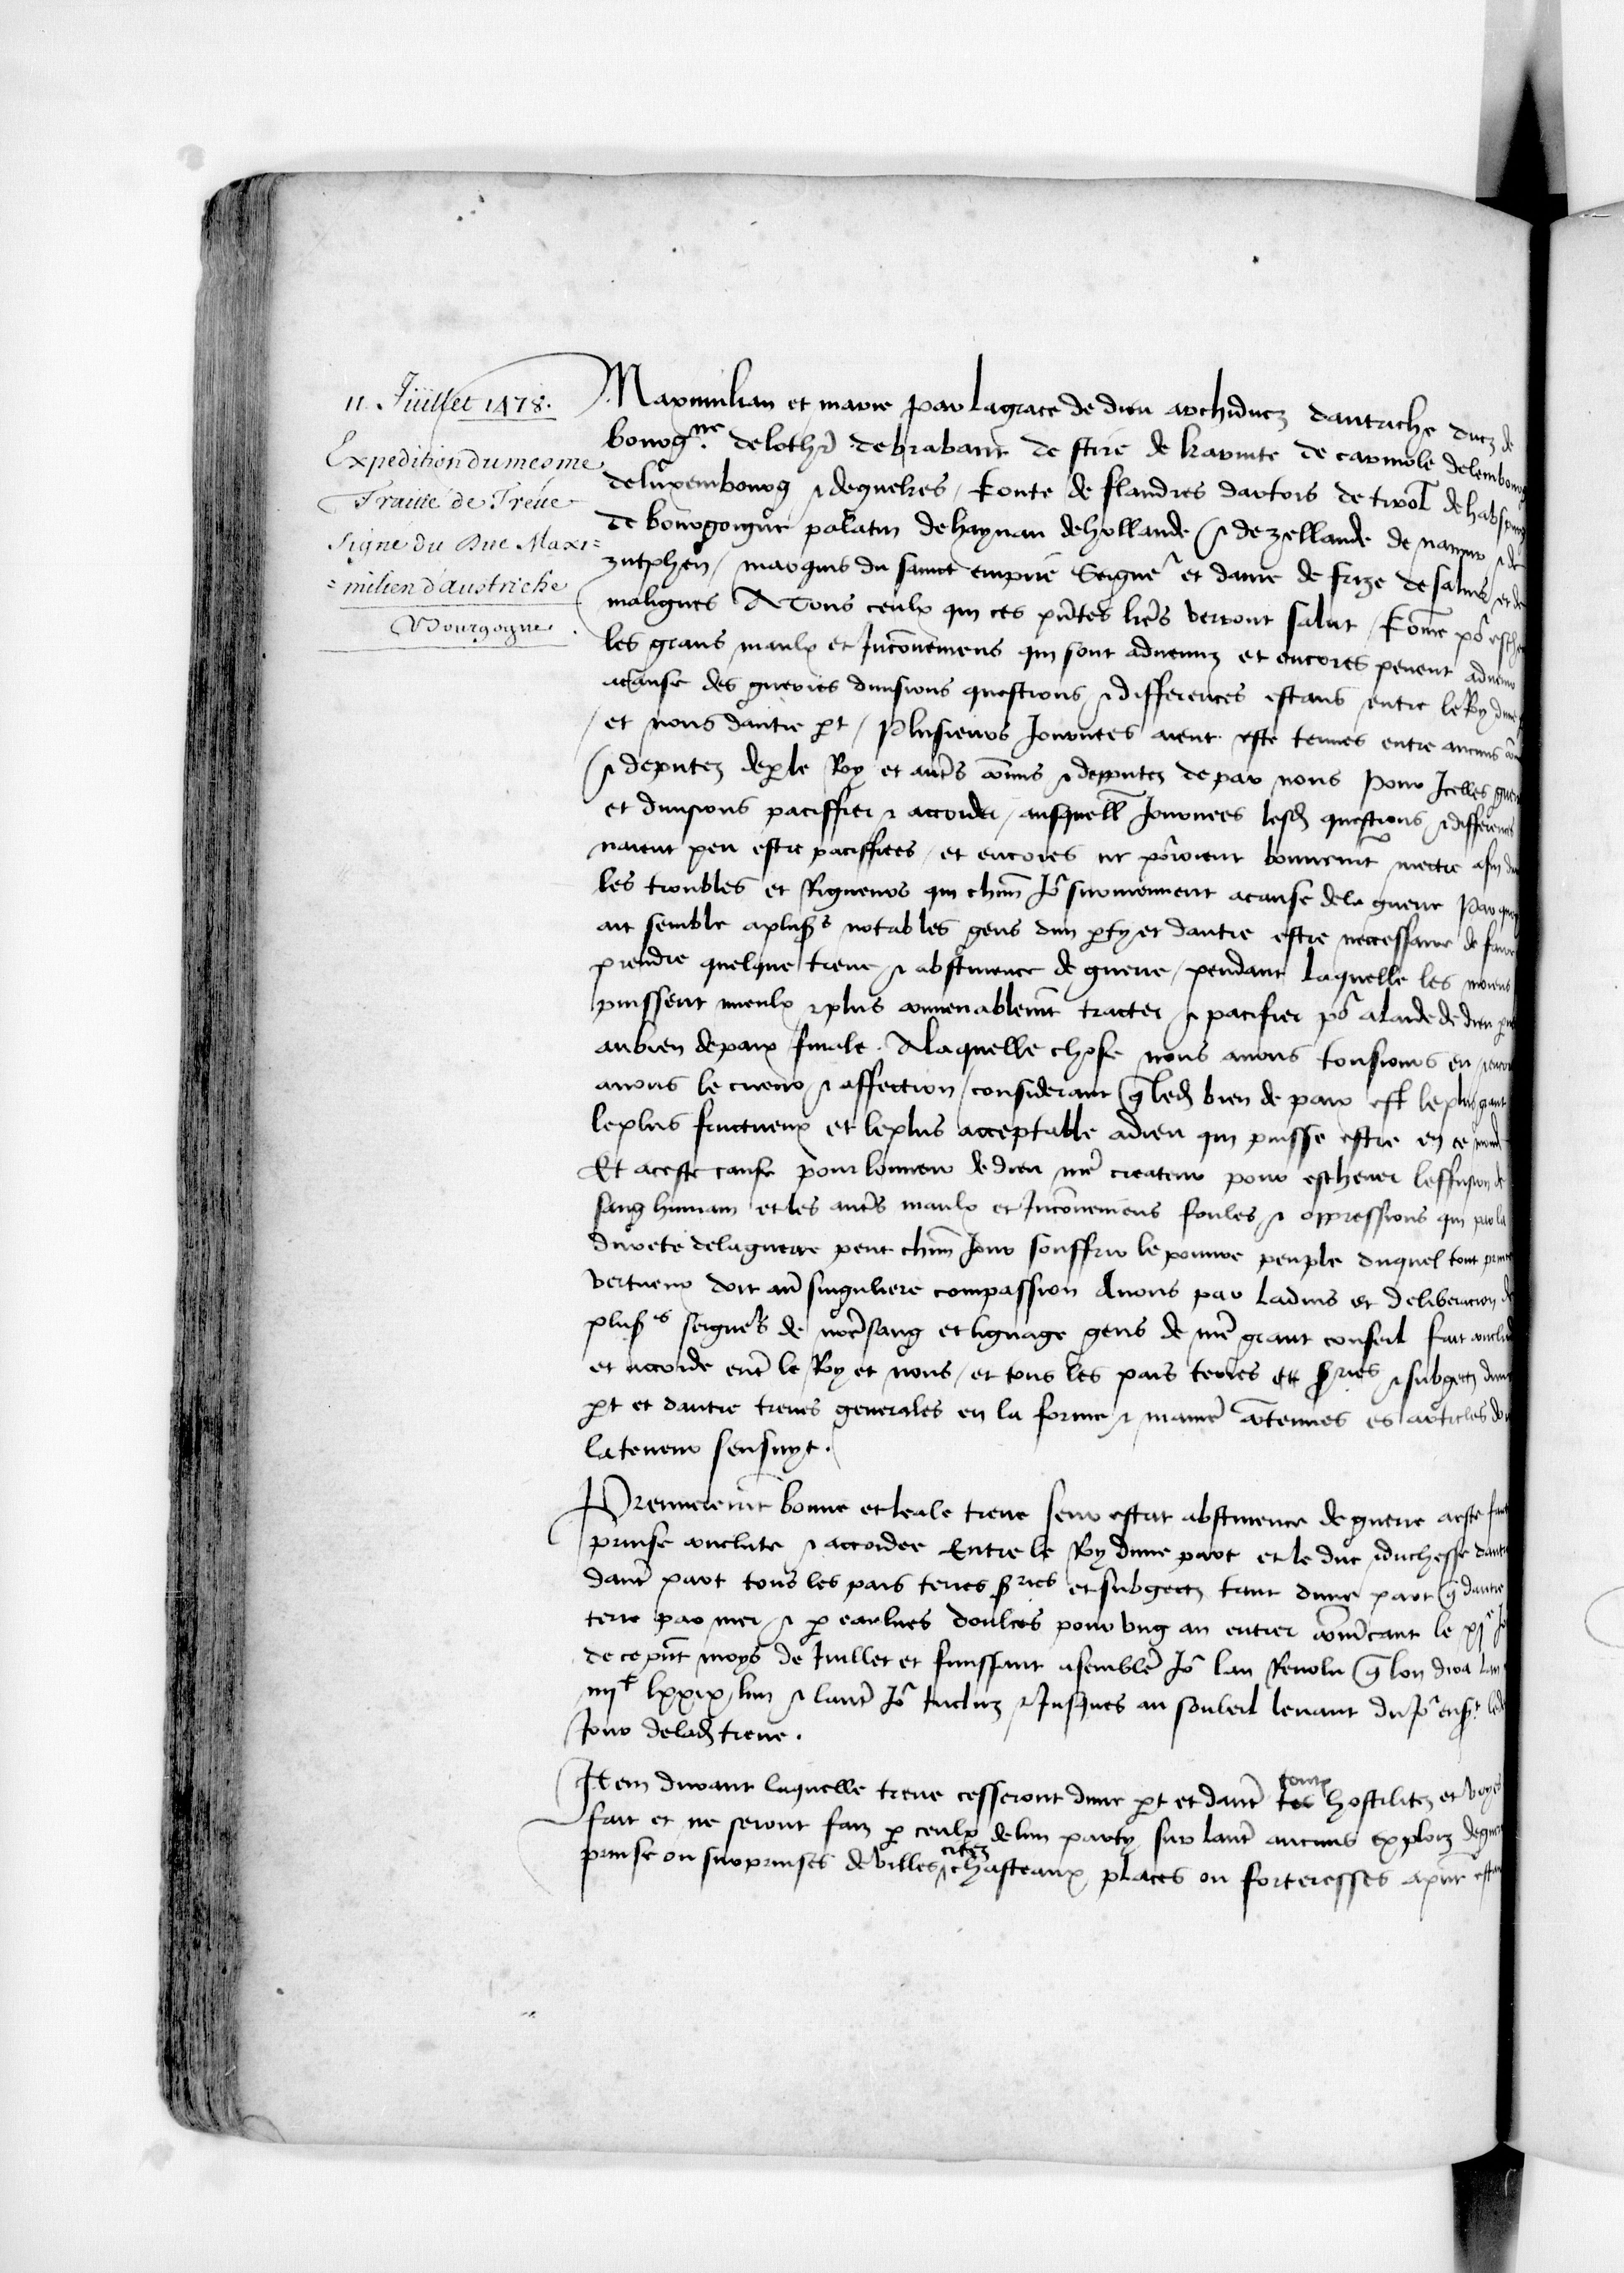 11. Juillet 1478.
Expedition du mesme
Traitté de Tréue
signé du Duc Maxi=
=milien d'austriche
Bourgogne.
Maximilian et marie par lagrace de dieu archiducz dautriche ducz de
bourgne. de lothr. de brabant de stire de karinte de carniole de lembourg
de luxembourg et de gueldres, Conte de flandres dartois de tirol de habspurg
de bourgongne palatin de haynau de hollande et de zellande de namur et de
zutphen, marquis du sainct empire Seignr et dame de frize de salins et de
malignes A Tous ceulx qui ces pntes lres verront salut, Come pour eschever
les grans maulx et Inconveniens qui sont advenuz et encores pevent advenir
acause des guerres divisions questions et differences estans entre le Roy dune
et nous dautre pt, Plusieurs Journees aient este tenues entre aucuns
et deputez de p le Roy et autrs commis et depputez de par nous Pour Icelles guerres
et divisions paciffier et accorder, ausquell Journees lesd questions et differences
naient peu estre paciffiees, et encores ne pourroient bonnemt mectre afin
les troubles et Rigueurs qui chun Jour surviennent acause dela guerre Par quoy
ait semble aplusrs notables gens dun pty et dautre estre necessaire de faire
prendre quelque treve et abstinence de guerre, pendant laquelle les moiens
puissent mieulx et plus convenablemt traicter et pacifier pour alaide de dieu
aubien de paix finale. A laquelle chose nous avons tousiours eu, encores
avons le cueur et affection, considerant q led bien de paix est le plus grant
le plus fructueux et le plus acceptable adieu qui puisse estre en ce monde
Et aceste cause pour lonneur de dieu nre createur pour eschever leffusion de
sang humain et les autrs maulx et Inconveniens foules et oppressions qui par la
durete delaguerre peut chun Jour souffrir le pouvre peuple duquel tout prince
vertueux doit avr singuliere compassion Avons par ladvis et deliberacion de
plusrs seigneurs de nresang et lignage gens de nre grant conseil fait conclud
et accorde entr le Roy et nous, et tous les pais terres et sries et subgectz dune
pt et dautre treves generales en la forme et manier contenues es articles dont
la teneur sensuyt.
Premieremt bonne et leale treve seur estat abstinence de guerre aeste faicte
prinse conclute et accordee Entre le Roy dune part et le duc et duchesse dautriche
dautr part tous les pais terres sries et subgectz tant dune part q dautre
terre par mer et p eaulues doulces pour ung an entier comencant le xje Jour
de ce pnt moys de Juillet et finissant asemblble Jour lan Revolu q lon dira lan
iiijc lxxix, lun et lautr Jour Incluz et Jusques au souleil levant du Jour ensr. led
Jour delad treve.
Item durant laquelle treve cesseront dune pt et dautr toutes hostilitez et voyes
fait et ne seront faiz p ceulx delun party sur lautr aucuns exploiz de guerre
prinse ou surprinses de villes citez chasteaux places ou forteresses